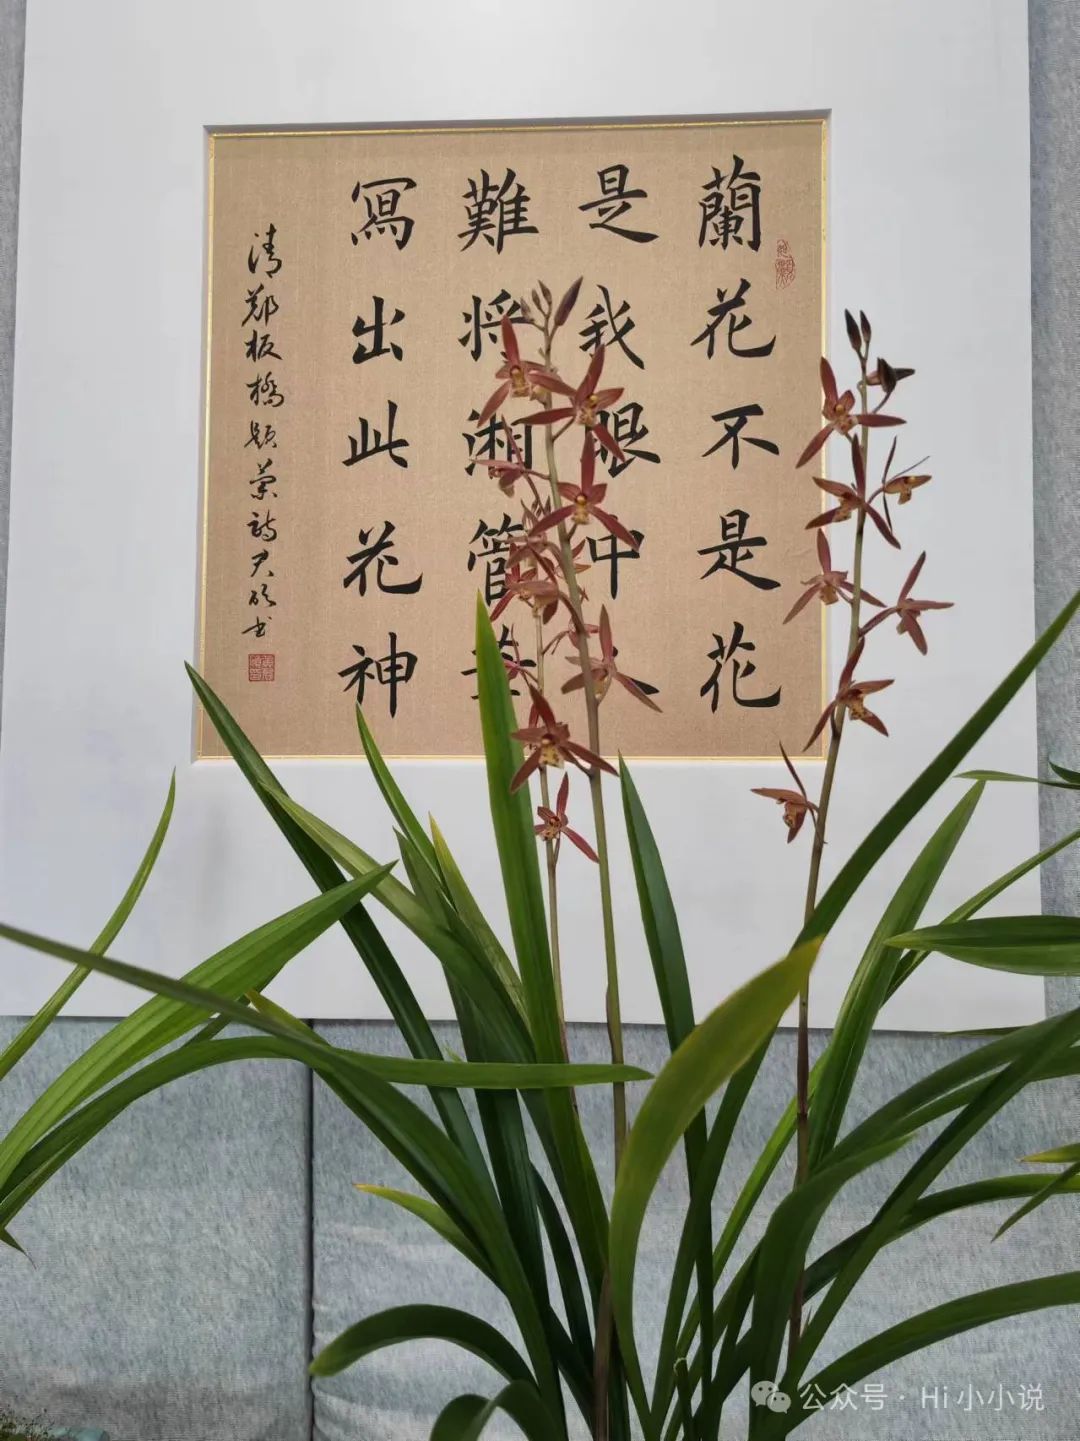 蘭花不是花
是我眼中人
難將湘管
冩出此花神
清鄭板橋題蘭詩尹书
公众号 · Hi小小说